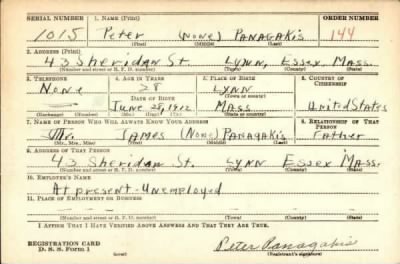 SERIAL NUMBER 1. NAME (Print) ORDER NUMBER
1015 Peter (None) PANAGAKIS 144
(First) (Middle) (Last)
2. ADDRESS (Print)
43 Sheridan St. LYNN, Essex, Mass.
(Number and street or R. F. D. number) (Town) (County) (State)
3. TELEPHONE 4. AGE IN YEARS 5. PLACE OF BIRTH 6. COUNTRY OF CITIZENSHIP
None 28 LYNN
DATE OF BIRTH (Town or county)
June 28, 1912 MASS United States
(Exchange) (Number) (Mo.) (Day) (Yr.) (State or country)
7. NAME OF PERSON WHO WILL ALWAYS KNOW YOUR ADDRESS 8. RELATIONSHIP OF THAT PERSON
Mr. JAMES (None) Panagakis Father
(Mr., Mrs., Miss) (First) (Middle) (Last)
9. ADDRESS OF THAT PERSON
43 Sheridan St. Lynn Essex Mass.
(Number and street or R. F. D. number) (Town) (County) (State)
10. EMPLOYER'S NAME
At present-Unemployed
11. PLACE OF EMPLOYMENT OR BUSINESS
(Number and street or R. F. D. number) (Town) (County) (State)
I AFFIRM THAT I HAVE VERIFIED ABOVE ANSWERS AND THAT THEY ARE TRUE.
REGISTRATION CARD
D. S. S. Form 1 (over) Peter Panagakis
(Registrant's signature)